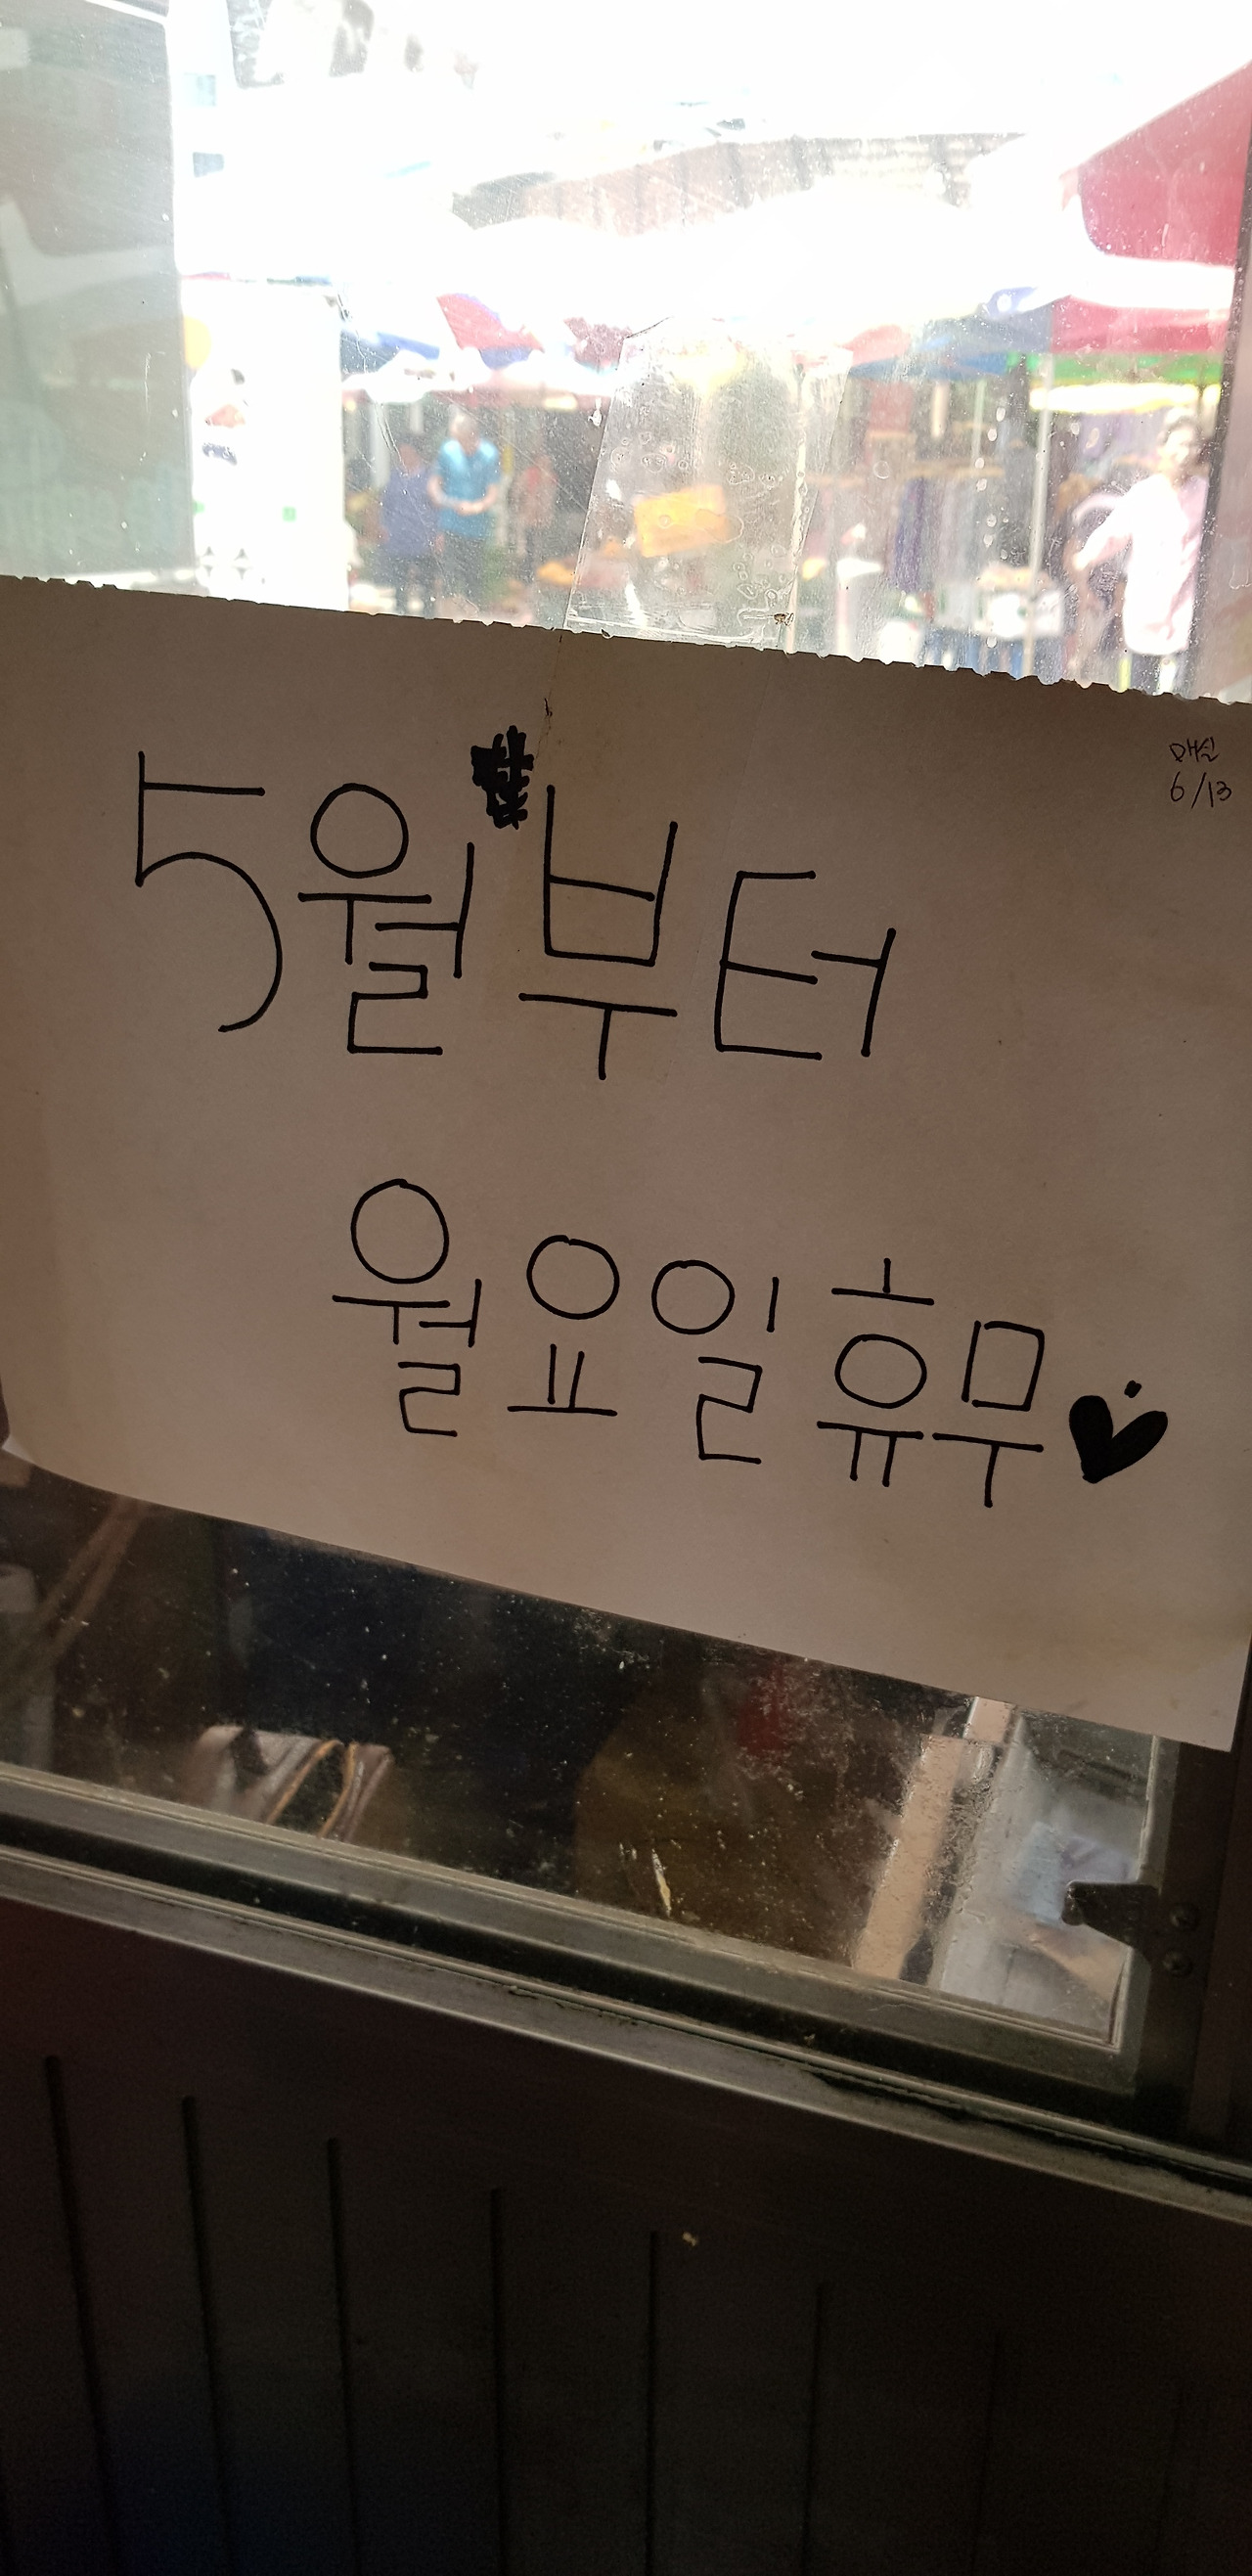 5월부터
월요일 휴무
6/13